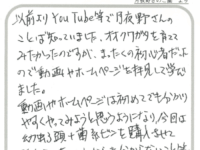 以前よりYouTube等で月夜野さんの
ことは知っていました。オオクワガタを育てて
みたかったのですが、まったくの初心者だったの
で動画やホームページを拝見して学び
ました。
動画やホームページは初めてでも分かり
やすくやってみようと思うようになり、今回は
幼虫3頭+菌糸ビンを購入させて